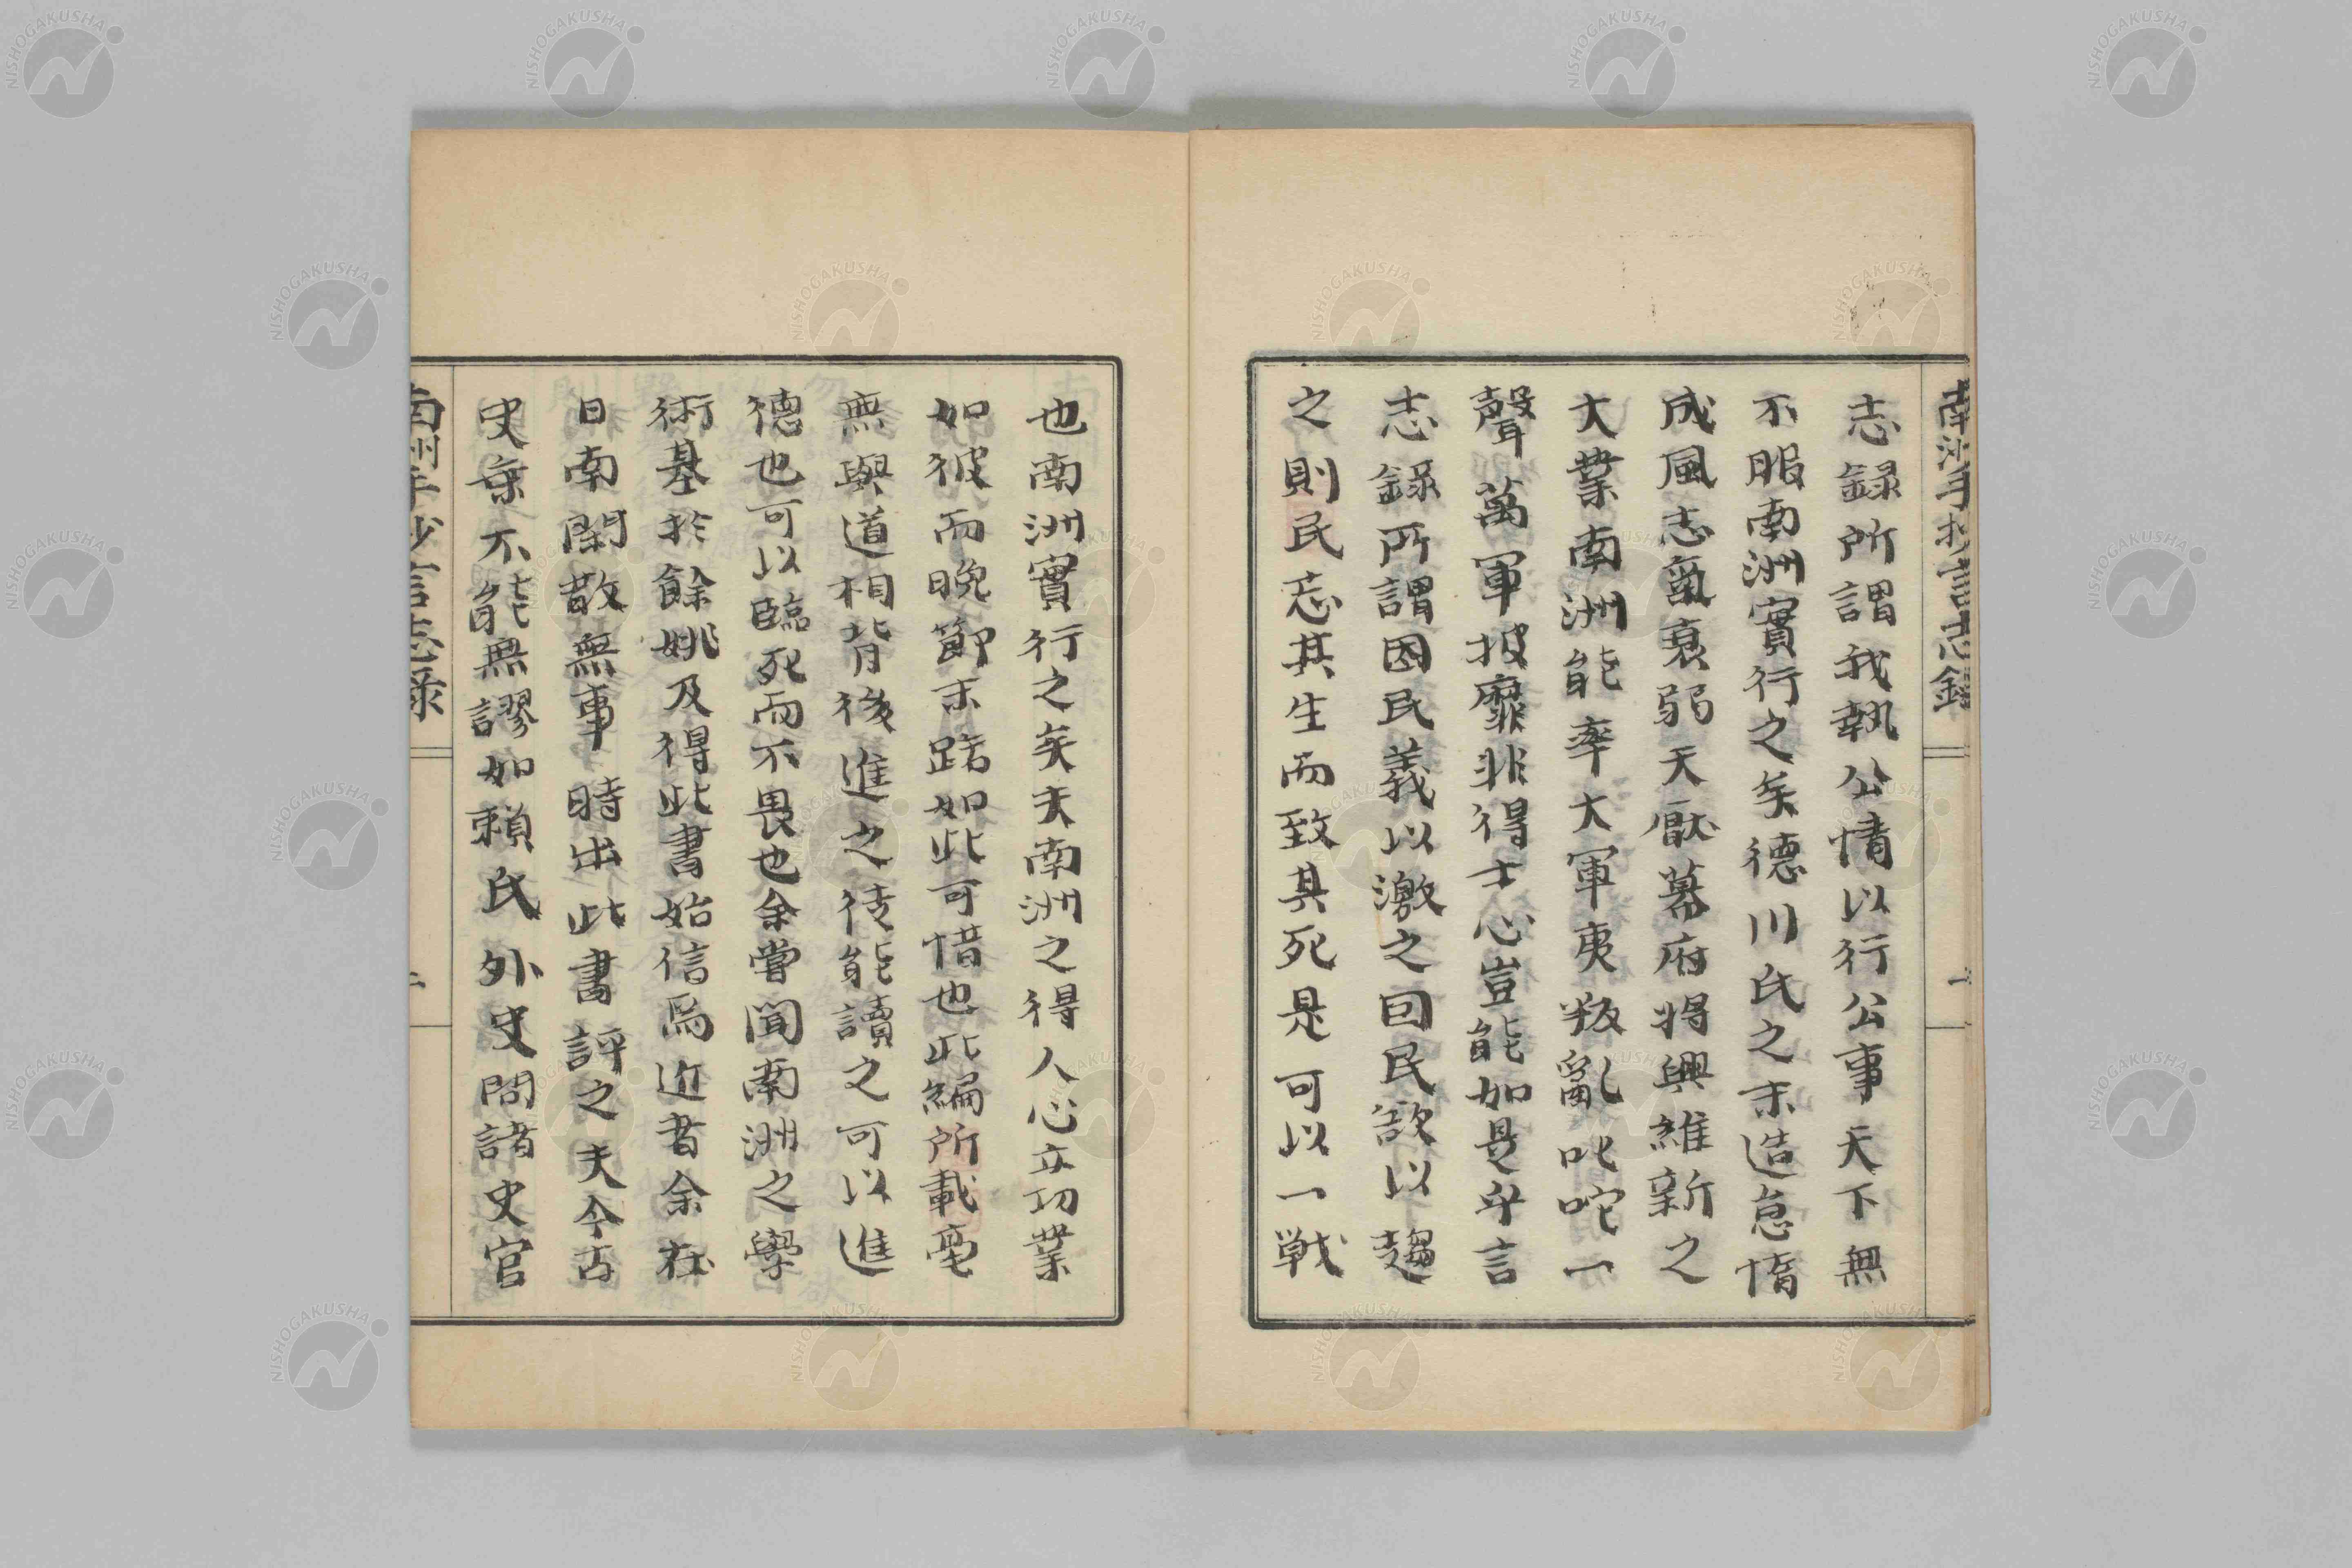 南洲手抄言志錄
志録所謂我執公情以行公事天下無
不服南洲實行之矣德川氏之末造怠惰
成風志氣衰弱天厭幕府將興維新之
大業南洲能率大軍夷叛亂叱咤一
聲萬軍披靡非得士心豈能如是乎言
志録所謂因民義以激之因民欲以趨
之則民忘其生而致其死是可以一戰
也南洲實行之矣夫南洲之得人心立功業
如彼而晚節末路如此可惜也此編所載毫
無與道相背後進之徒能讀之可以進
德也可以臨死而不畏也余嘗聞南洲之學
術基於餘姚及得此書始信焉近者余在
日南閑散無事時出此書評之夫今古
史乘不能無謬如賴氏外史問諸史官
南洲手抄言志錄
NISHOGAKUSHA